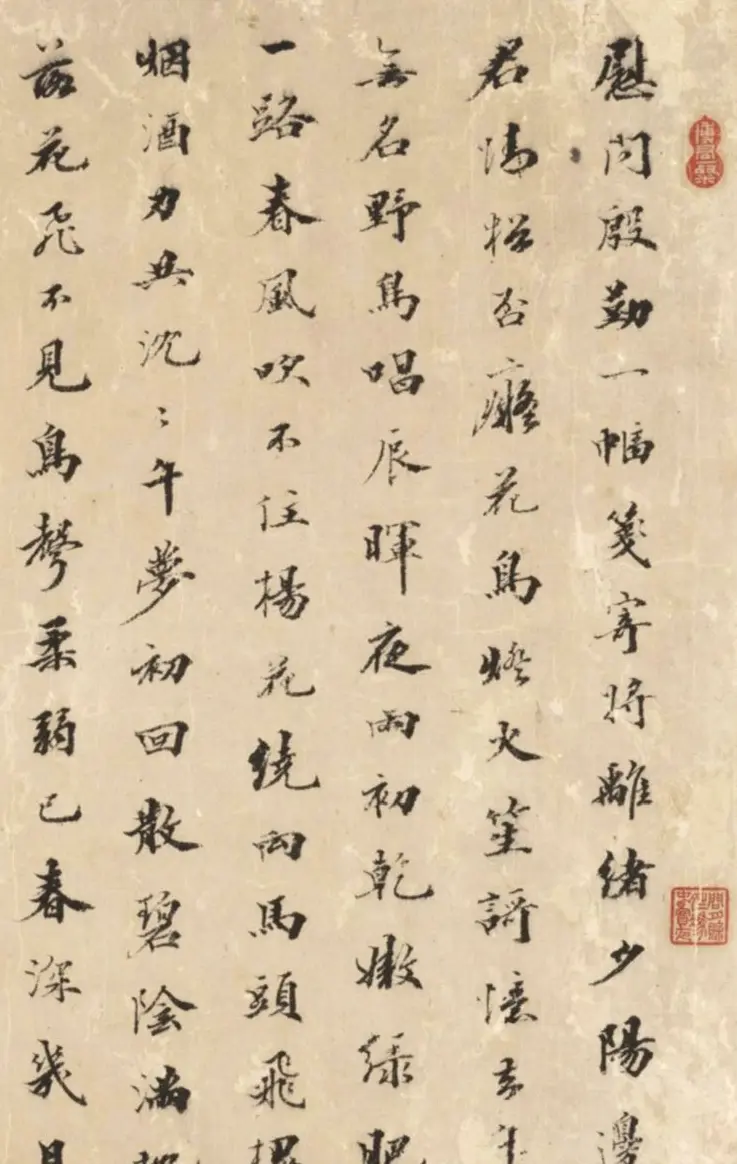 慰問殷勤一幅箋寄將離緒少陽邊
君情松否癡花鳥燈火笙謌憶去年
無名野鳥唱辰暉夜雨初乾嫩綠肥
一路春風吹不住楊花繞雨馬頭飛
烟酒力共沈〻午夢初回散碧陰滿
落花飛不見鳥聲柔弱已春深幾